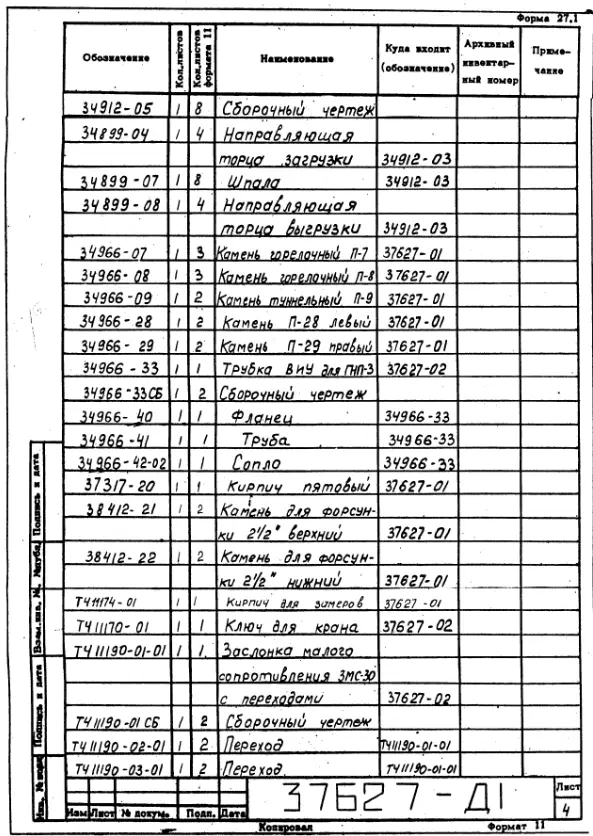 Форма 27.1
Обозначение Кол.листов Кол.листов формата 11 Наименование Куда входит (обозначение) Архивный инвентарный номер Примечание
34912-05 1 8 Сборочный чертеж
34899-04 1 4 Направляющая
торца загрузки 34912-03
34899-07 1 8 Шпала 34912-03
34899-08 1 4 Направляющая
торца выгрузки 34912-03
34966-07 1 3 Камень горелочный П-7 37627-01
34966-08 1 3 Камень горелочный П-8 37627-01
34966-09 1 2 Камень туннельный П-9 37627-01
34966-28 1 2 Камень П-28 левый 37627-01
34966-29 1 2 Камень П-29 правый 37627-01
34966-33 1 1 Трубка ВИУ для ГНП-3 37627-02
34966-33СБ 1 2 Сборочный чертеж
34966-40 1 1 Фланец 34966-33
34966-41 1 1 Труба 34966-33
34966-42-02 1 1 Сопло 34966-33
37317-20 1 1 Кирпич пятовый 37627-01
38412-21 1 2 Камень для форсун-
ки 2½" верхний 37627-01
38412-22 1 2 Камень для форсун-
ки 2½" нижний 37627-01
ТЧ11174-01 1 1 Кирпич для замеров 37627-01
ТЧ11170-01 1 1 Ключ для крана 37627-02
ТЧ11190-01-01 1 1 Заслонка малого
сопротивления ЗМС-30
с переходами 37627-02
ТЧ11190-01 СБ 1 2 Сборочный чертеж
ТЧ11190-02-01 1 2 Переход ТЧ11190-01-01
ТЧ11190-03-01 1 2 Переход ТЧ11190-01-01
Подпись и дата
Взам.инв. №
Подпись и дата
37627-Д1
Лист
4
Изм Лист № докум. Подп. Дата
Копировал Формат 11